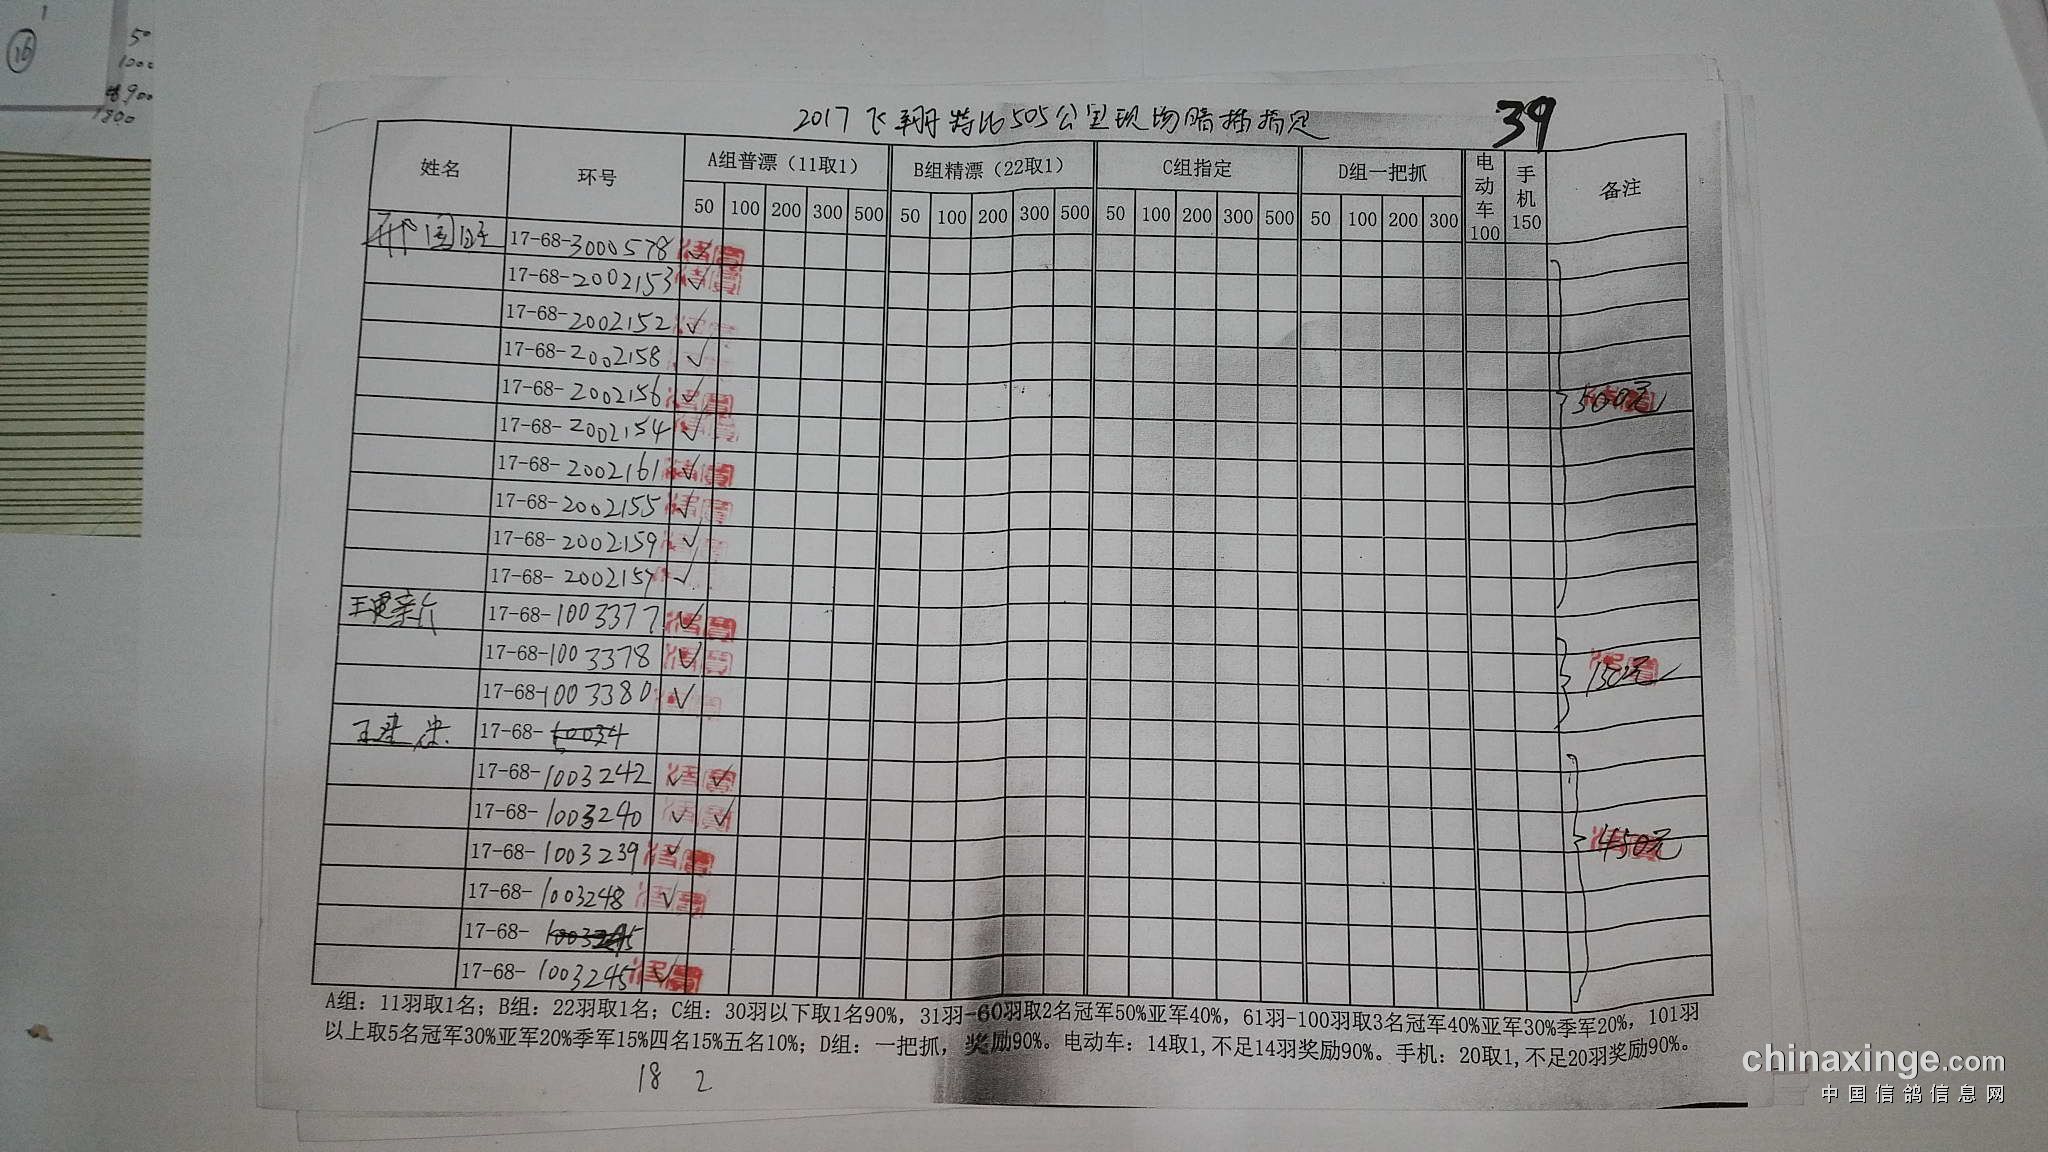 1
16
50
1000
900
1800
2017飞翔特比505公里现场暗插指定
39
姓名 环号 A组普漂（11取1） B组精漂（22取1） C组指定 D组一把抓 电动车100 手机150 备注
50 100 200 300 500 50 100 200 300 500 50 100 200 300 500 50 100 200 300
17-68-3000578 ✓
17-68-2002153 ✓
17-68-2002152 ✓
17-68-2002158 ✓
17-68-2002156 ✓ 500元
17-68-2002154 ✓
17-68-2002161 ✓
17-68-2002155 ✓
17-68-2002159 ✓
17-68-2002157 ✓
17-68-1003377 ✓
17-68-1003378 ✓ 150元
17-68-1003380 ✓
17-68-10034
17-68-1003242 ✓ ✓
17-68-1003240 ✓ ✓
17-68-1003239 ✓ 450元
17-68-1003248 ✓
17-68-1003245
17-68-1003245 ✓
A组：11羽取1名；B组：22羽取1名；C组：30羽以下取1名90%，31羽-60羽取2名冠军50%亚军40%，61羽-100羽取3名冠军40%亚军30%季军20%，101羽
以上取5名冠军30%亚军20%季军15%四名15%五名10%；D组：一把抓，奖励90%。电动车：14取1,不足14羽奖励90%。手机：20取1,不足20羽奖励90%。
18 2
chinaxinge.com
中国信鸽信息网